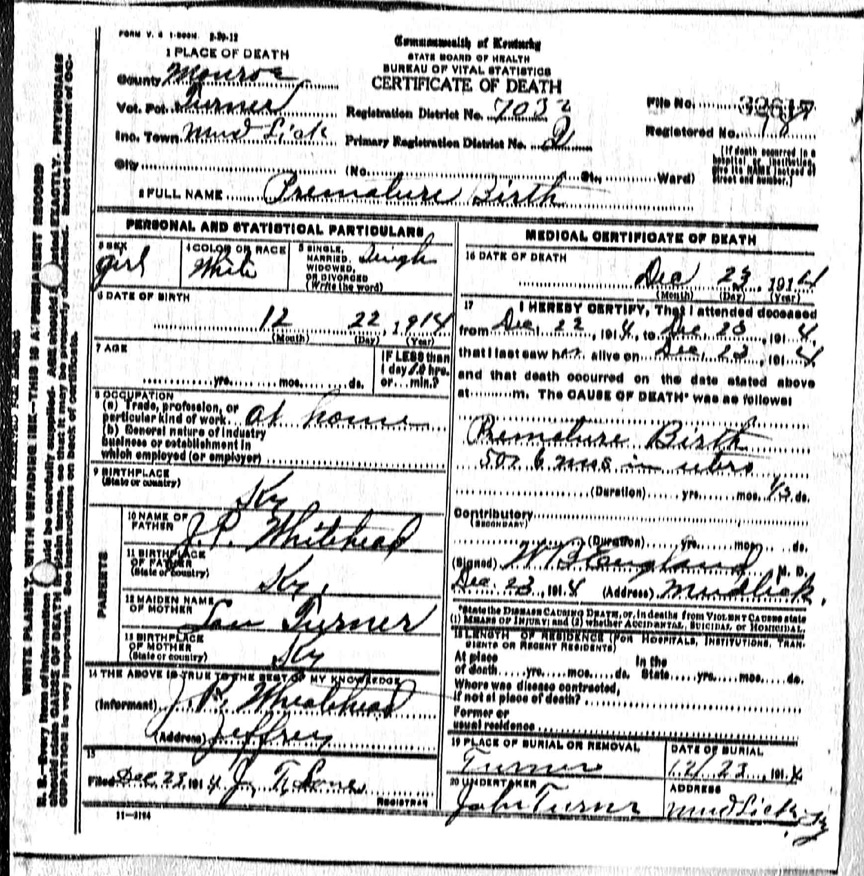 FORM V. S 1-500M 2-20-12
Commonwealth of Kentucky
STATE BOARD OF HEALTH
BUREAU OF VITAL STATISTICS
CERTIFICATE OF DEATH
1 PLACE OF DEATH
County Monroe
Vot. Pct. Turner
Inc. Town Mud Lick
City
Registration District No. 7032
Primary Registration District No. 2
File No.
Registered No.
(No. St., Ward)
(If death occurred in a hospital or institution, give its NAME instead of street and number.)
2 FULL NAME Premature Birth
PERSONAL AND STATISTICAL PARTICULARS
3 SEX girl
4 COLOR OR RACE White
5 SINGLE, MARRIED, WIDOWED, OR DIVORCED (Write the word) Single
6 DATE OF BIRTH
12 22, 1914
(Month) (Day) (Year)
7 AGE
yrs. mos. ds.
IF LESS than 1 day hrs. or min.?
8 OCCUPATION
(a) Trade, profession, or particular kind of work at home
(b) General nature of industry business or establishment in which employed (or employer)
9 BIRTHPLACE
(State or country) Ky
PARENTS
10 NAME OF FATHER J.P. Whitehead
11 BIRTHPLACE OF FATHER (State or country) Ky.
12 MAIDEN NAME OF MOTHER Lou Turner
13 BIRTHPLACE OF MOTHER (State or country) Ky
14 THE ABOVE IS TRUE TO THE BEST OF MY KNOWLEDGE
(Informant) J.P.
(Address) Jeffrey
15
Filed Dec 23 1914
REGISTRAR
11-3184
MEDICAL CERTIFICATE OF DEATH
16 DATE OF DEATH
Dec 23, 1914
(Month) (Day) (Year)
17 I HEREBY CERTIFY, That I attended deceased
from Dec 22, 1914, to Dec 23, 1914
that I last saw her alive on Dec 23, 1914
and that death occurred on the date stated above
at m. The CAUSE OF DEATH* was as follows:
Premature Birth
5 or 6 mos in
(Duration) yrs. mos. ds.
Contributory
(SECONDARY)
(Duration) yrs. mos. ds.
(Signed) W B England M. D.
Dec. 23, 1914 (Address) Mudlick.
*State the DISEASE CAUSING DEATH, or, in deaths from VIOLENT CAUSES state
(1) MEANS OF INJURY; and (2) whether ACCIDENTAL, SUICIDAL, OR HOMICIDAL.
18 LENGTH OF RESIDENCE (FOR HOSPITALS, INSTITUTIONS, TRANSIENTS OR RECENT RESIDENTS)
At place of death yrs. mos. ds. In the State yrs. mos. ds.
Where was disease contracted,
if not at place of death?
Former or
usual residence
19 PLACE OF BURIAL OR REMOVAL Turner
DATE OF BURIAL 12/23, 1914
20 UNDERTAKER John Turner
ADDRESS Mud Lick Ky
WRITE PLAINLY, WITH UNFADING INK—THIS IS A PERMANENT RECORD